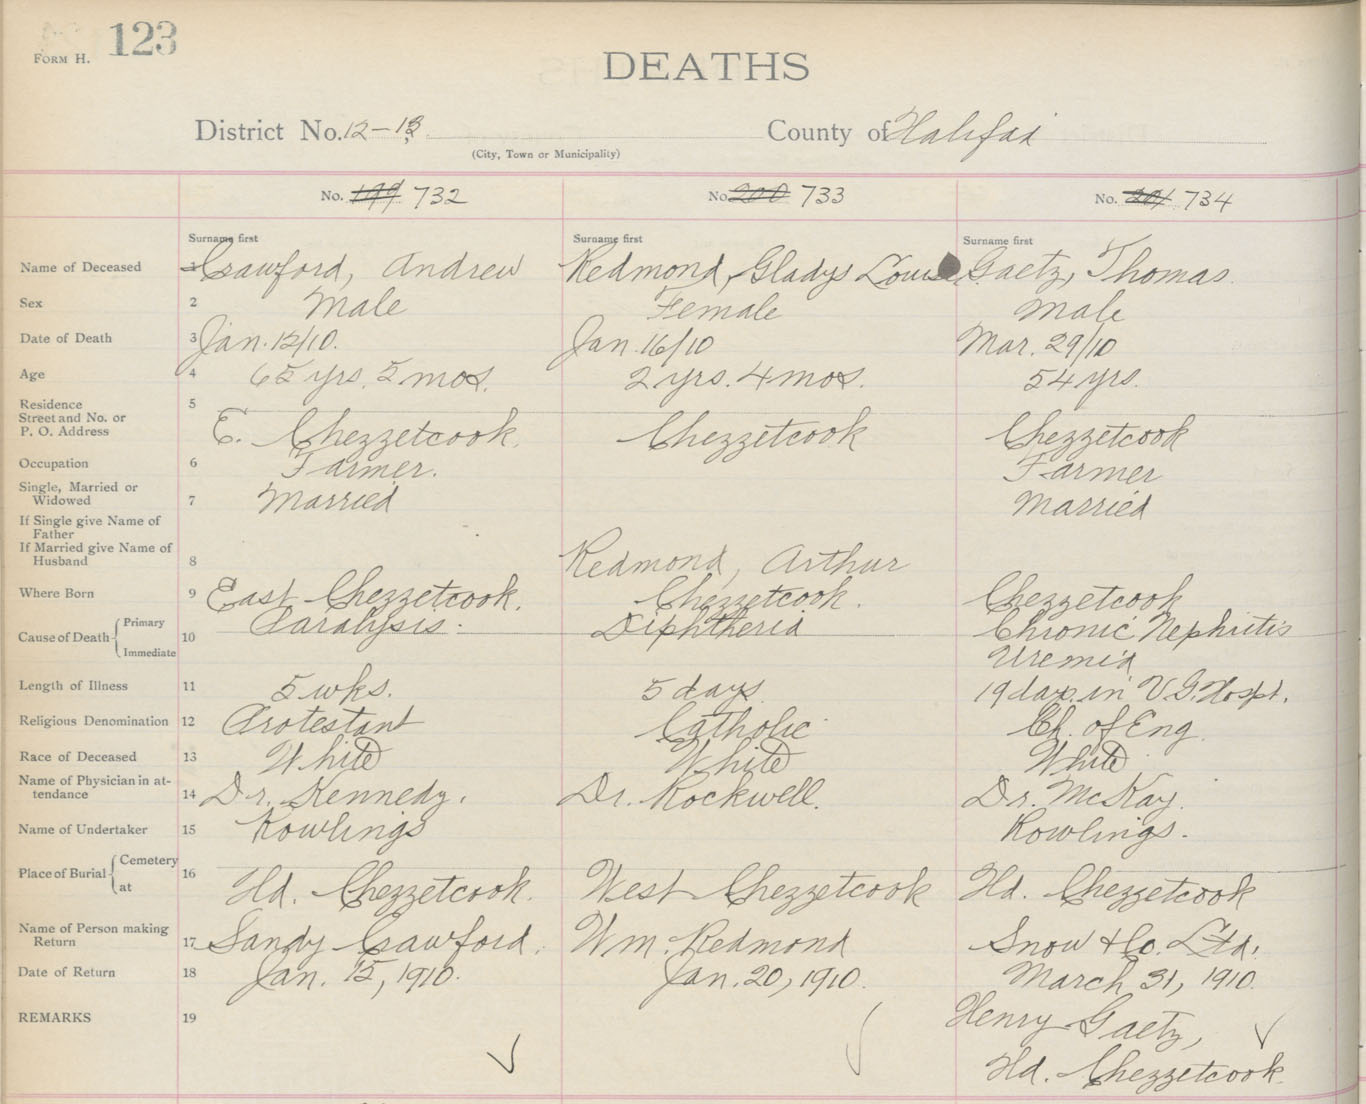 FORM H. 123
DEATHS
District No. 12-13 County of Halifax
(City, Town or Municipality)
No. 199 732 No. 200 733 No. 201 734
Surname first Surname first Surname first
Name of Deceased 1 Crawford, Andrew Redmond, Gladys Louise Gaetz, Thomas.
Sex 2 Male Female Male
Date of Death 3 Jan. 12/10. Jan. 16/10 Mar. 29/10
Age 4 65 yrs. 5 mos. 2 yrs. 4 mos. 54 yrs.
Residence
Street and No. or
P. O. Address 5 E. Chezzetcook. Chezzetcook Chezzetcook
Occupation 6 Farmer. Farmer
Single, Married or
Widowed 7 Married Married
If Single give Name of
Father
If Married give Name of
Husband 8 Redmond, Arthur
Where Born 9 East Chezzetcook. Chezzetcook. Chezzetcook
Cause of Death Primary 10 Paralysis. Diphtheria Chronic Nephritis
Immediate Uremia
Length of Illness 11 5 wks. 5 days 19 days in V.G. Hospt.
Religious Denomination 12 Protestant Catholic Ch. of Eng.
Race of Deceased 13 White White White
Name of Physician in at-
tendance 14 Dr. Kennedy. Dr. Rockwell. Dr. McKay.
Name of Undertaker 15 Rowlings Rowlings.
Place of Burial Cemetery 16
at Hd. Chezzetcook. West Chezzetcook Hd. Chezzetcook
Name of Person making
Return 17 Sandy Crawford. Wm. Redmond Snow & Co. Ltd.
Date of Return 18 Jan. 15, 1910. Jan. 20, 1910. March 31, 1910.
REMARKS 19 Henry Gaetz,
Hd. Chezzetcook.